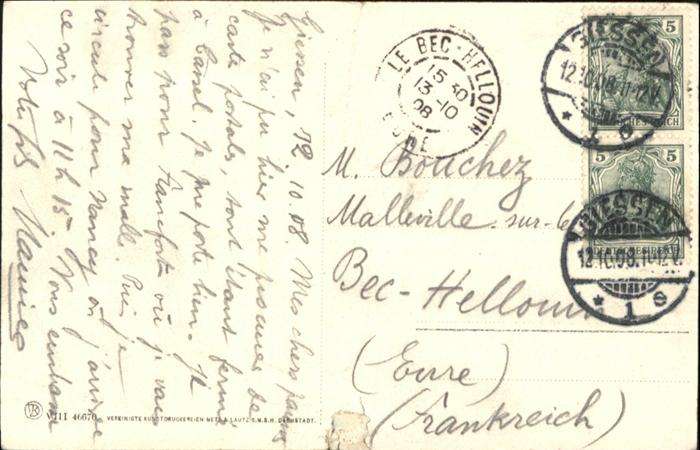 Giessen, 12.10.08. Mes chers parents
Je n'ai pu hier me procurer de
cartes postales, tout étant fermé
à Cassel. Je me porte bien. Je
pars pour Francfort où je vais
trouver ma malle. Puis je
circule pour Nancy où j'arrive
ce soir à 11 h 15. Vous embrasse
Votre fils
M. Bouchez
Malleville-sur-le
Bec-Hellouin
(Eure)
(Frankreich)
LE BEC-HELLOUIN
15 30
13-10
08
EURE
5
GIESSEN
12.10.08.11-12V.
* 1 e
5
GIESSEN
DEUTSCHES REICH
12.10.08.11-12V.
* 1 e
VIII 46670
VEREINIGTE KUNSTDRUCKEREIEN METZ & LAUTZ G.M.B.H. DARMSTADT.